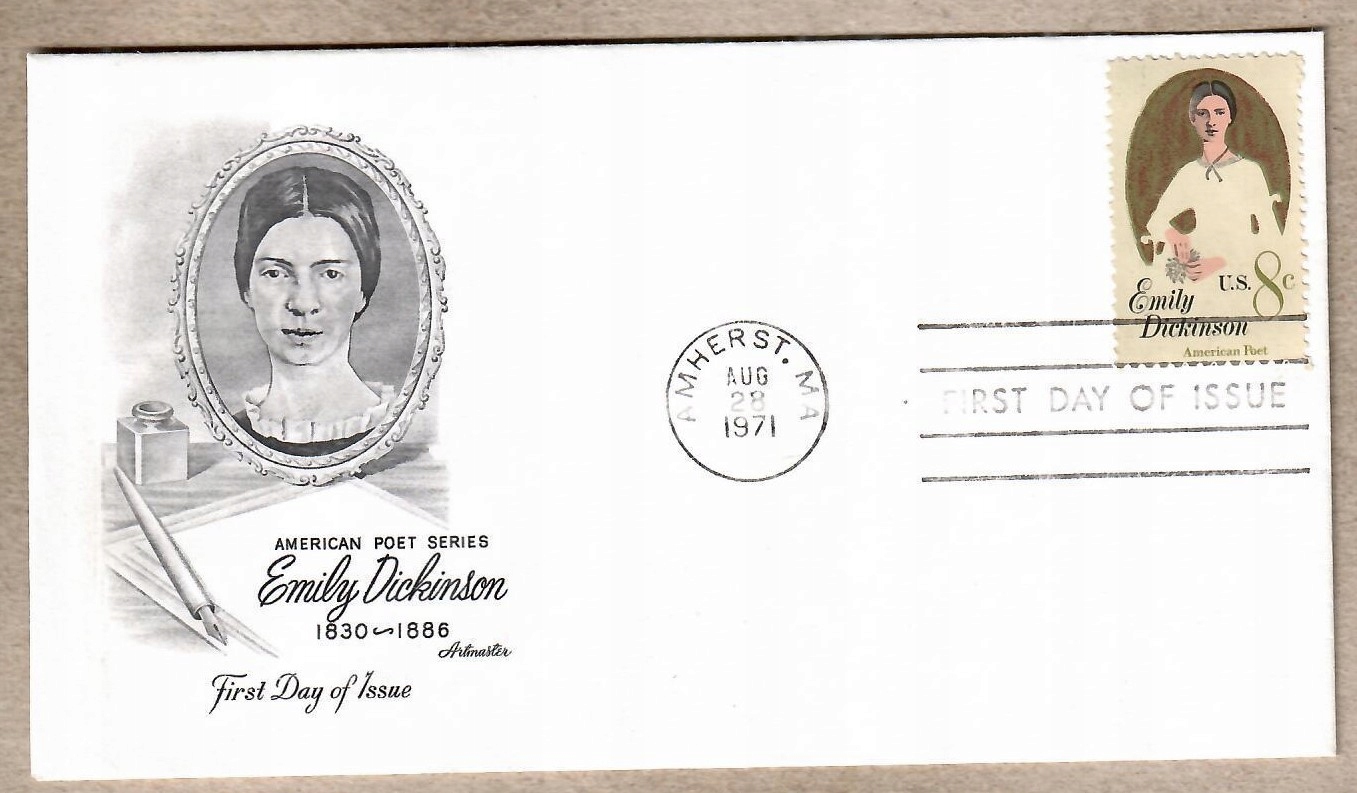 AMERICAN POET SERIES
Emily Dickinson
1830~1886
Artmaster
First Day of Issue
AMHERST, MA
AUG
28
1971
U.S. 8c
Emily
Dickinson
American Poet
FIRST DAY OF ISSUE